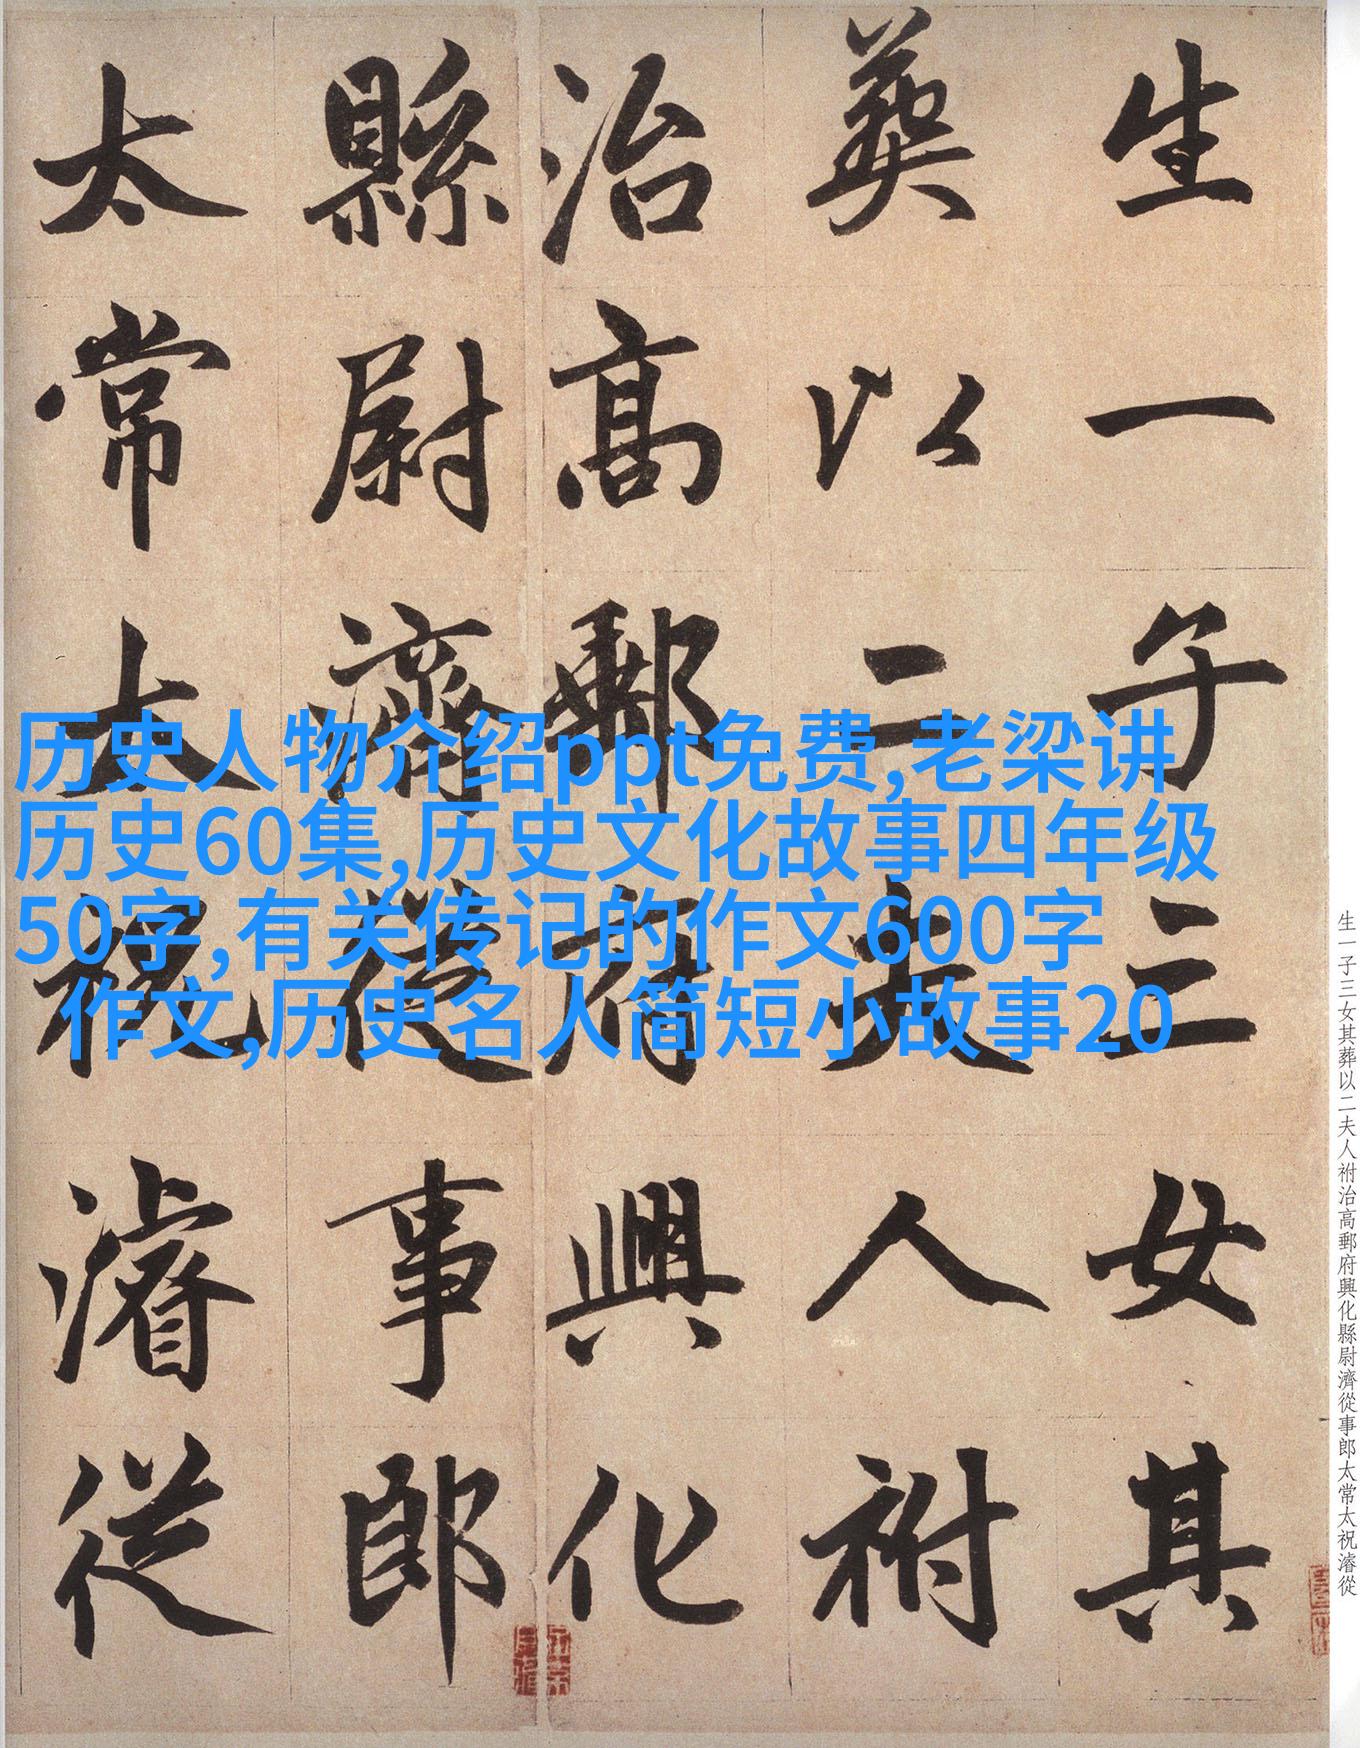 生一子三女其
葬以二夫人祔
治高郵府興化
縣尉濟從事郎
太常太祝濬從
历史人物介绍ppt免费,老梁讲
历史60集,历史文化故事四年级
50字,有关传记的作文600字
作文,历史名人简短小故事20
生一子三女其葬以二夫人祔治高郵府興化縣尉濟從事郎太常太祝濬從